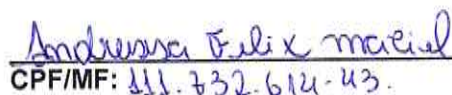 Andressa Felix maciel
CPF/MF: 111.732.614-43.